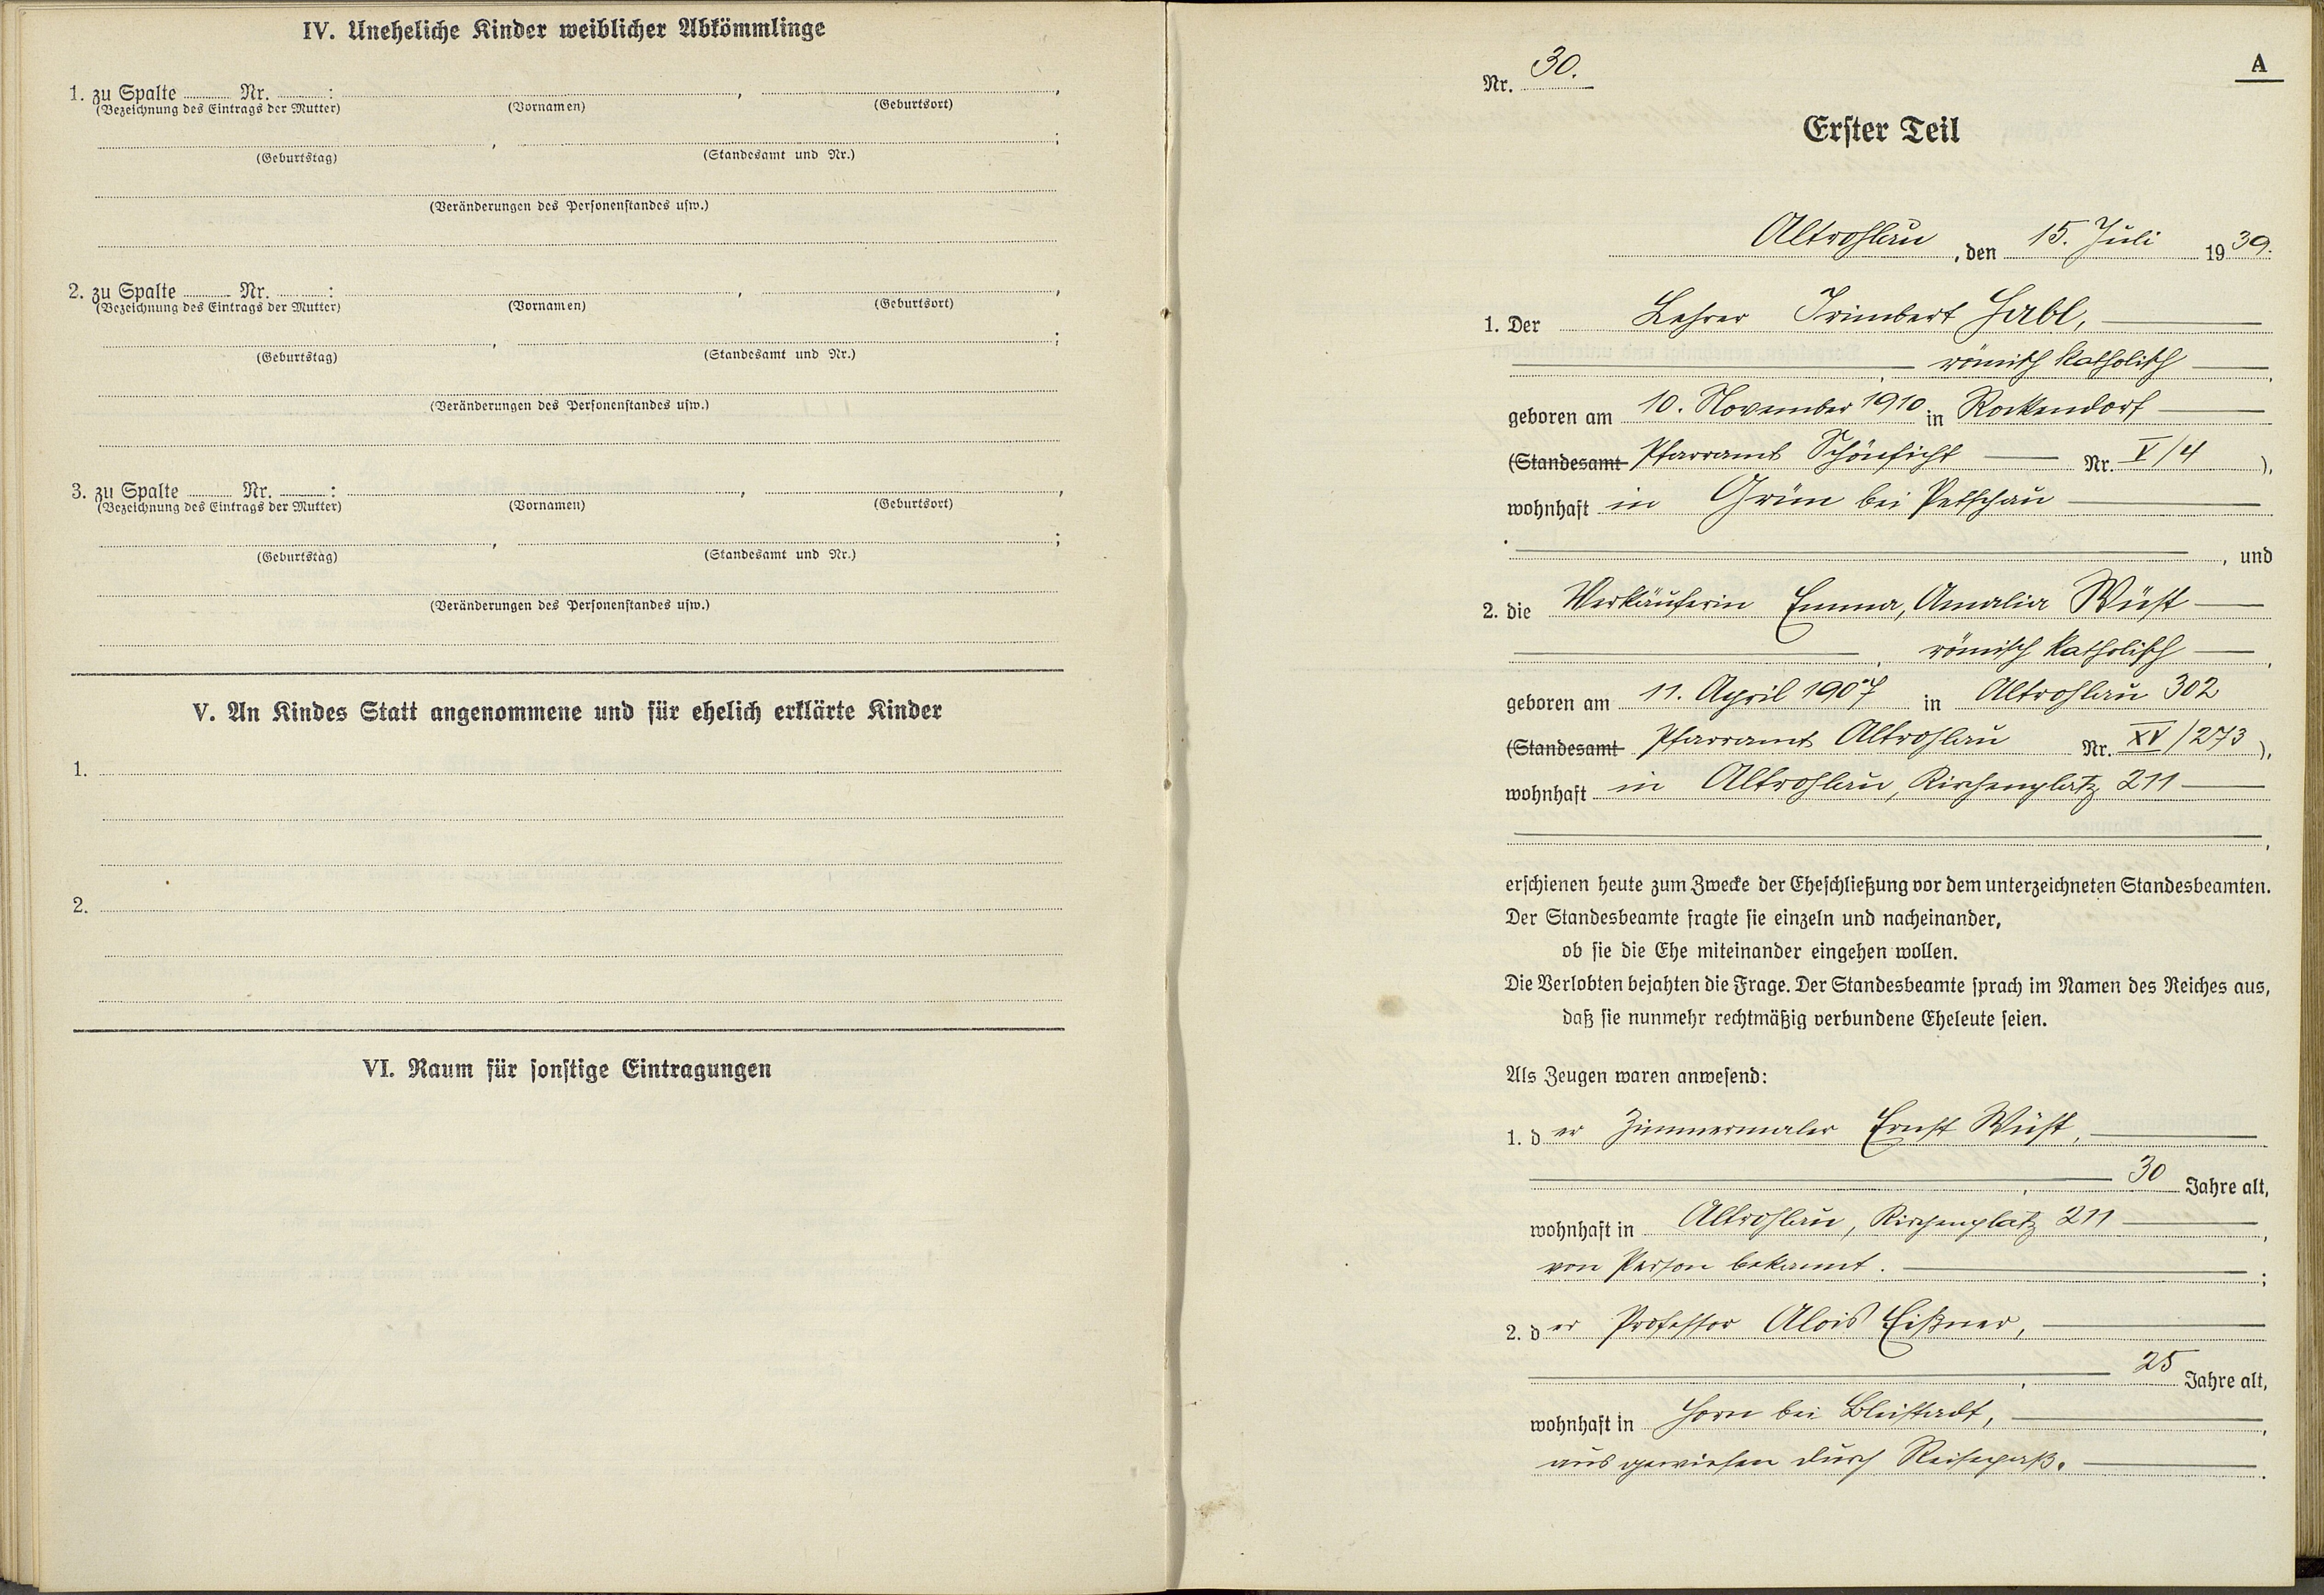 IV. Uneheliche Kinder weiblicher Abkömmlinge
1. zu Spalte ........ Nr. ........ : ........ , ........ ,
(Bezeichnung des Eintrags der Mutter) (Vornamen) (Geburtsort)
........ , ........ ;
(Geburtstag) (Standesamt und Nr.)
(Veränderungen des Personenstandes usw.)
2. zu Spalte ........ Nr. ........ : ........ , ........ ,
(Bezeichnung des Eintrags der Mutter) (Vornamen) (Geburtsort)
........ , ........ ;
(Geburtstag) (Standesamt und Nr.)
(Veränderungen des Personenstandes usw.)
3. zu Spalte ........ Nr. ........ : ........ , ........ ,
(Bezeichnung des Eintrags der Mutter) (Vornamen) (Geburtsort)
........ , ........ ;
(Geburtstag) (Standesamt und Nr.)
(Veränderungen des Personenstandes usw.)
V. An Kindes Statt angenommene und für ehelich erklärte Kinder
1.
2.
VI. Raum für sonstige Eintragungen
A
Nr. 30.
Erster Teil
Altrohlau, den 15. Juli 1939.
1. Der Lehrer Irimbert Habl,
, römisch katholisch ,
geboren am 10. November 1910 in Rockendorf
(Standesamt Pfarramt Schönficht Nr. V/4 ),
wohnhaft in Grün bei Petschau
, und
2. die Verkäuferin Emma, Amalia Wüst
, römisch katholisch ,
geboren am 11. April 1907 in Altrohlau 302
(Standesamt Pfarramt Altrohlau Nr. XV/273 ),
wohnhaft in Altrohlau, Kirchenplatz 211
,
erschienen heute zum Zwecke der Eheschließung vor dem unterzeichneten Standesbeamten.
Der Standesbeamte fragte sie einzeln und nacheinander,
ob sie die Ehe miteinander eingehen wollen.
Die Verlobten bejahten die Frage. Der Standesbeamte sprach im Namen des Reiches aus,
daß sie nunmehr rechtmäßig verbundene Eheleute seien.
Als Zeugen waren anwesend:
1. der Zimmermaler Ernst Wüst,
, 30 Jahre alt,
wohnhaft in Altrohlau, Kirchenplatz 211 ,
von Person bekannt. ;
2. der Professor Alois Eißner,
, 25 Jahre alt,
wohnhaft in Horn bei Bleistadt, ,
ausgewiesen durch Reisepaß. .